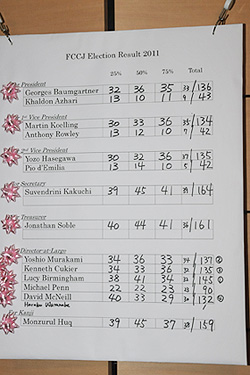 FCCJ Election Result 2011
25% 50% 75% Total
President
Georges Baumgartner 32 36 35 33/136
Khaldon Azhari 13 10 11 9/43
1st Vice President
Martin Koelling 30 33 36 35/134
Anthony Rowley 13 12 10 7/42
2nd Vice President
Yozo Hasegawa 30 32 36 37/135
Pio d'Emilia 13 10 14 5/42
Secretary
Suvendrini Kakuchi 39 45 41 39/164
Treasurer
Jonathan Soble 40 44 41 36/161
Director at Large
Yoshio Murakami 34 36 33 34/137
Kenneth Cukier 34 33 36 32/135
Lucy Birmingham 38 41 34 32/145
Michael Penn 22 22 23 23/90
David McNeill 40 33 29 30/132
Haruko Watanabe
For Kanji
Monzurul Huq 39 45 37 38/159